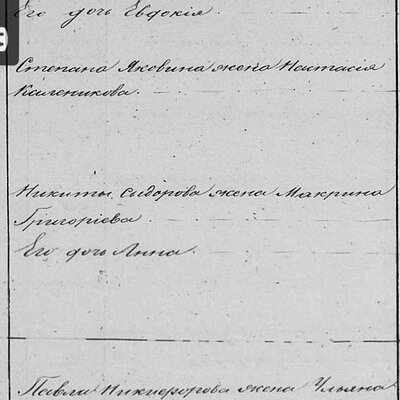 Его дочь Евдокія.
Степана Яковина жена Настасія
Каленикова.
Никиты Сыдорова жена Макрина
Григоріева
Его дочь Анна.
Павла Никифорова жена Ульяна